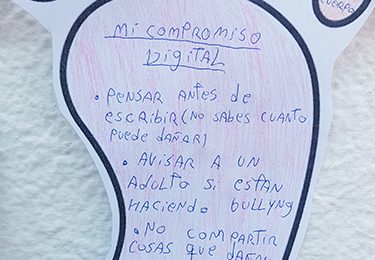 CUERPO
MI COMPROMISO
DIGITAL
• PENSAR ANTES DE
ESCRIBIR (NO SABES CUANTO
PUEDE DAÑAR)
• AVISAR A UN
ADULTO SI ESTAN
HACIENDO BULLYNG
• NO COMPARTIR
COSAS QUE DAÑN